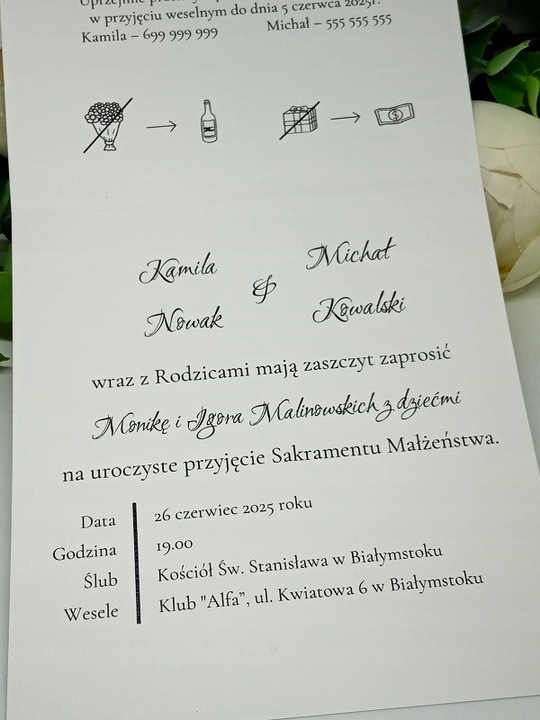 Uprzejmie
w przyjęciu weselnym do dnia 5 czerwca 2025r.
Kamila – 699 999 999 Michał – 555 555 555
Kamila Michał
&
Nowak Kowalski
wraz z Rodzicami mają zaszczyt zaprosić
Monikę i Igora Malinowskich z dziećmi
na uroczyste przyjęcie Sakramentu Małżeństwa.
Data 26 czerwiec 2025 roku
Godzina 19.00
Ślub Kościół Św. Stanisława w Białymstoku
Wesele Klub "Alfa”, ul. Kwiatowa 6 w Białymstoku